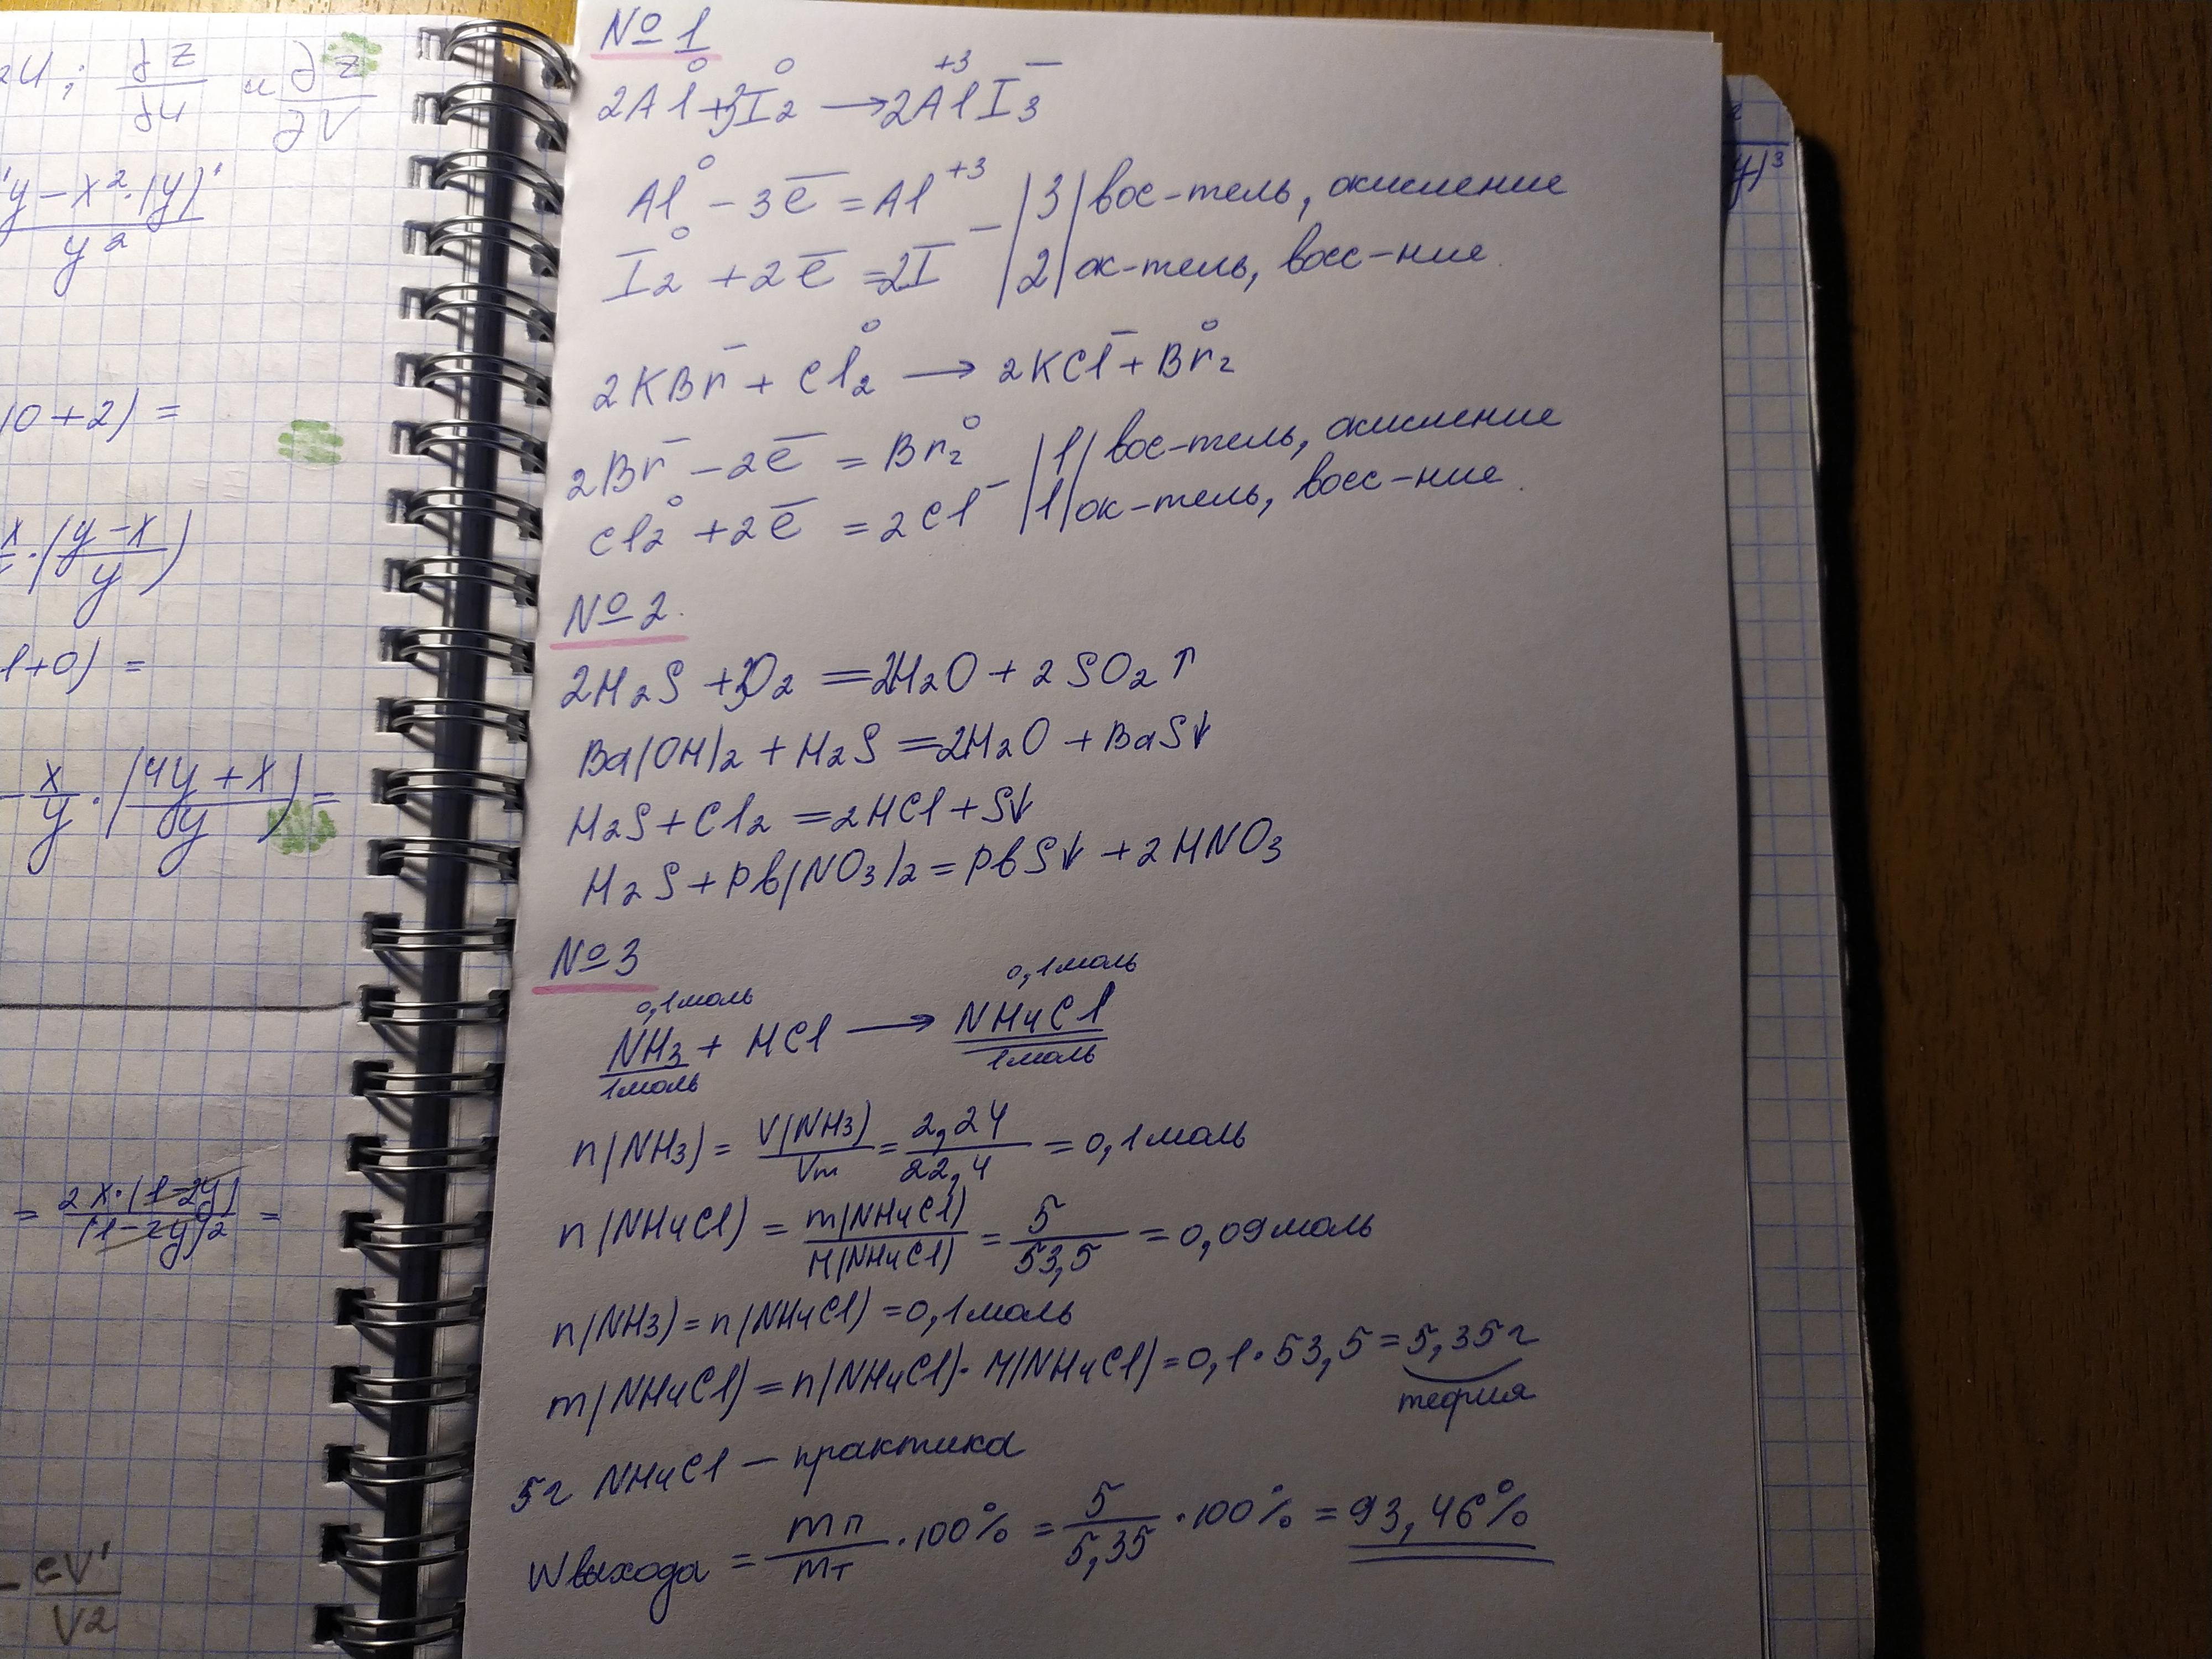 zu; ∂z/∂u и ∂z/∂v
'y − x²·(y)'
y²
(0+2) =
x/ ·(y−x/y)
1+0) =
− x/y · (4y+x/y) =
= 2x·(1−2y)/(1−2y)2 =
− cv'/v2
№1
2Al⁰ + 3I₂⁰ → 2Al⁺³I₃⁻
Al⁰ − 3e̅ = Al⁺³ |3| вос-тель, окисление
I₂⁰ + 2e̅ = 2I⁻ |2| ок-тель, восс-ние.
2KBr⁻ + Cl₂⁰ → 2KCl⁻ + Br₂⁰
2Br⁻ − 2e̅ = Br₂⁰ |1| вос-тель, окисление
Cl₂⁰ + 2e̅ = 2Cl⁻ |1| ок-тель, восс-ние.
№2.
2H₂S + 3O₂ = 2H₂O + 2SO₂↑
Ba(OH)₂ + H₂S = 2H₂O + BaS↓
H₂S + Cl₂ = 2HCl + S↓
H₂S + Pb(NO₃)₂ = PbS↓ + 2HNO₃
№3
0,1моль 0,1моль
NH₃ + HCl → NH₄Cl
1моль 1моль
n(NH₃) = V(NH₃)/Vm = 2,24/22,4 = 0,1моль
n(NH₄Cl) = m(NH₄Cl)/M(NH₄Cl) = 5/53,5 = 0,09моль
n(NH₃) = n(NH₄Cl) = 0,1моль
m(NH₄Cl) = n(NH₄Cl)·M(NH₄Cl) = 0,1·53,5 = 5,35г
теория
5г NH₄Cl — практика
Wвыхода = mп/mт ·100% = 5/5,35 ·100% = 93,46%